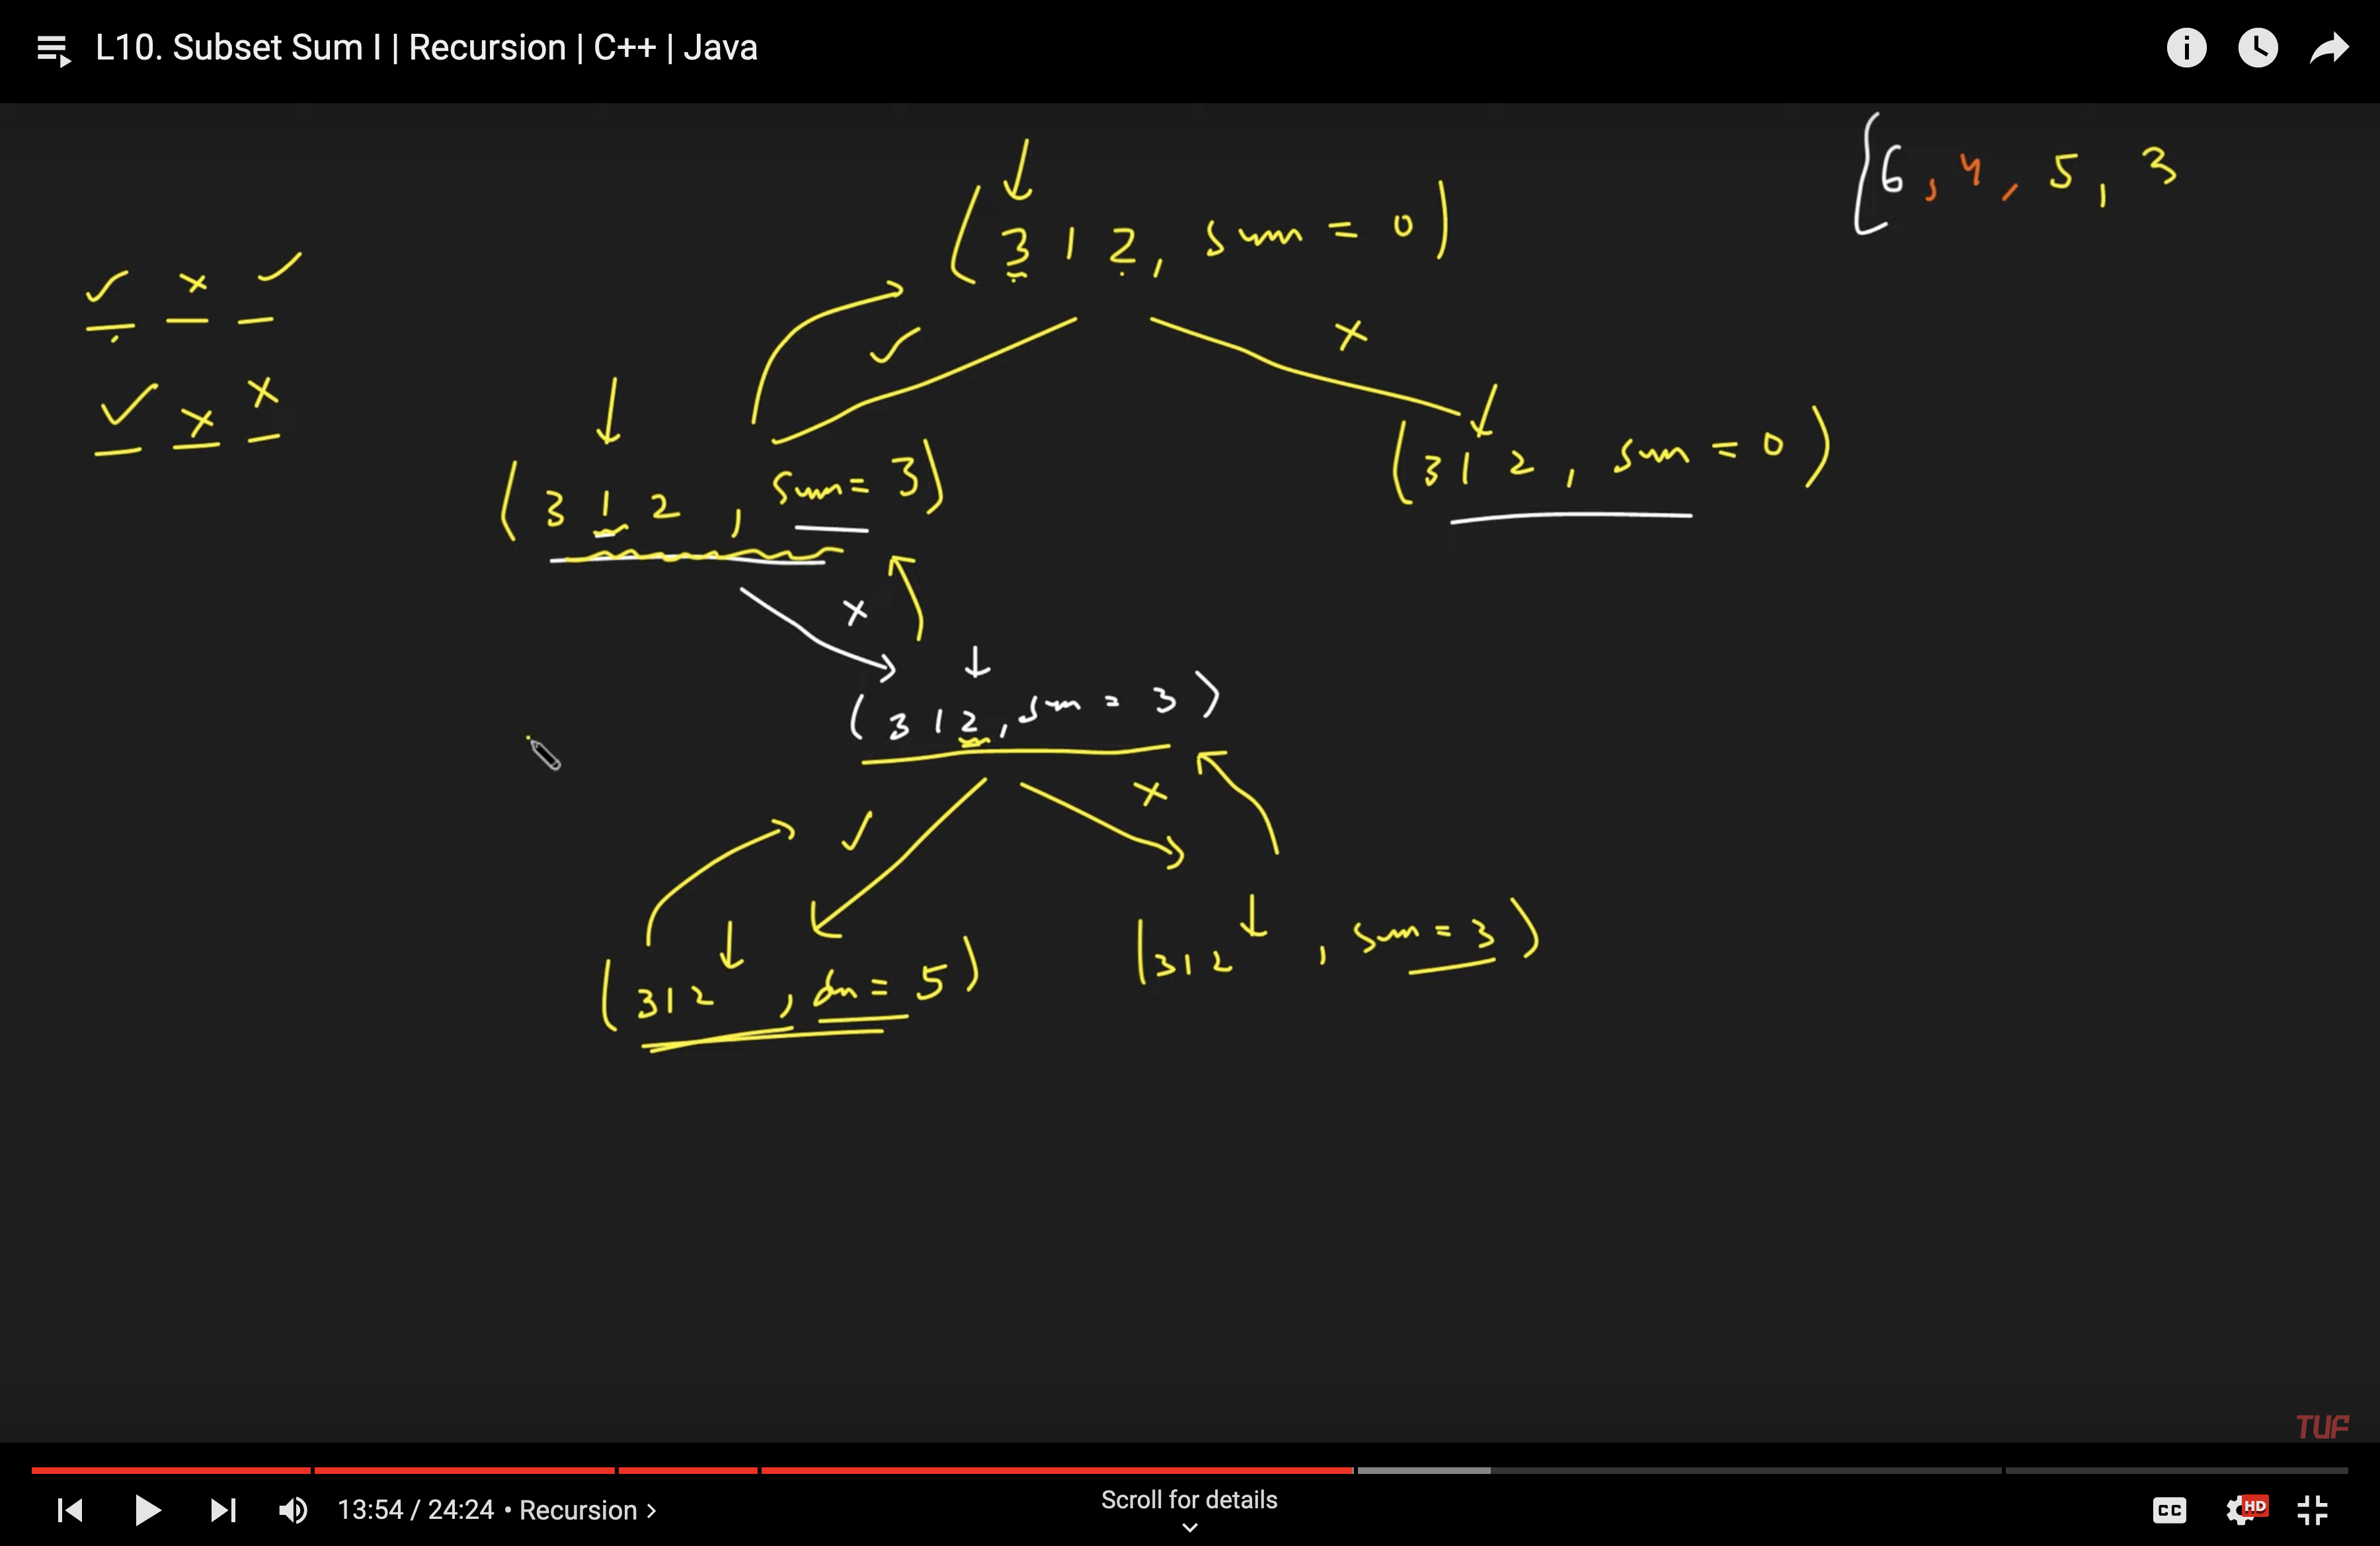 L10. Subset Sum I | Recursion | C++ | Java
[6, 4, 5, 3
(3 1 2, sum = 0)
✓ x ✓
✓
x
✓ x x
(3 1 2, sum = 3)
(3 1 2, sum = 0)
x
(3 1 2, sum = 3)
✓
x
(3 1 2, sum = 5)
(3 1 2, sum = 3)
TUF
13:54 / 24:24 • Recursion >
Scroll for details
CC
HD